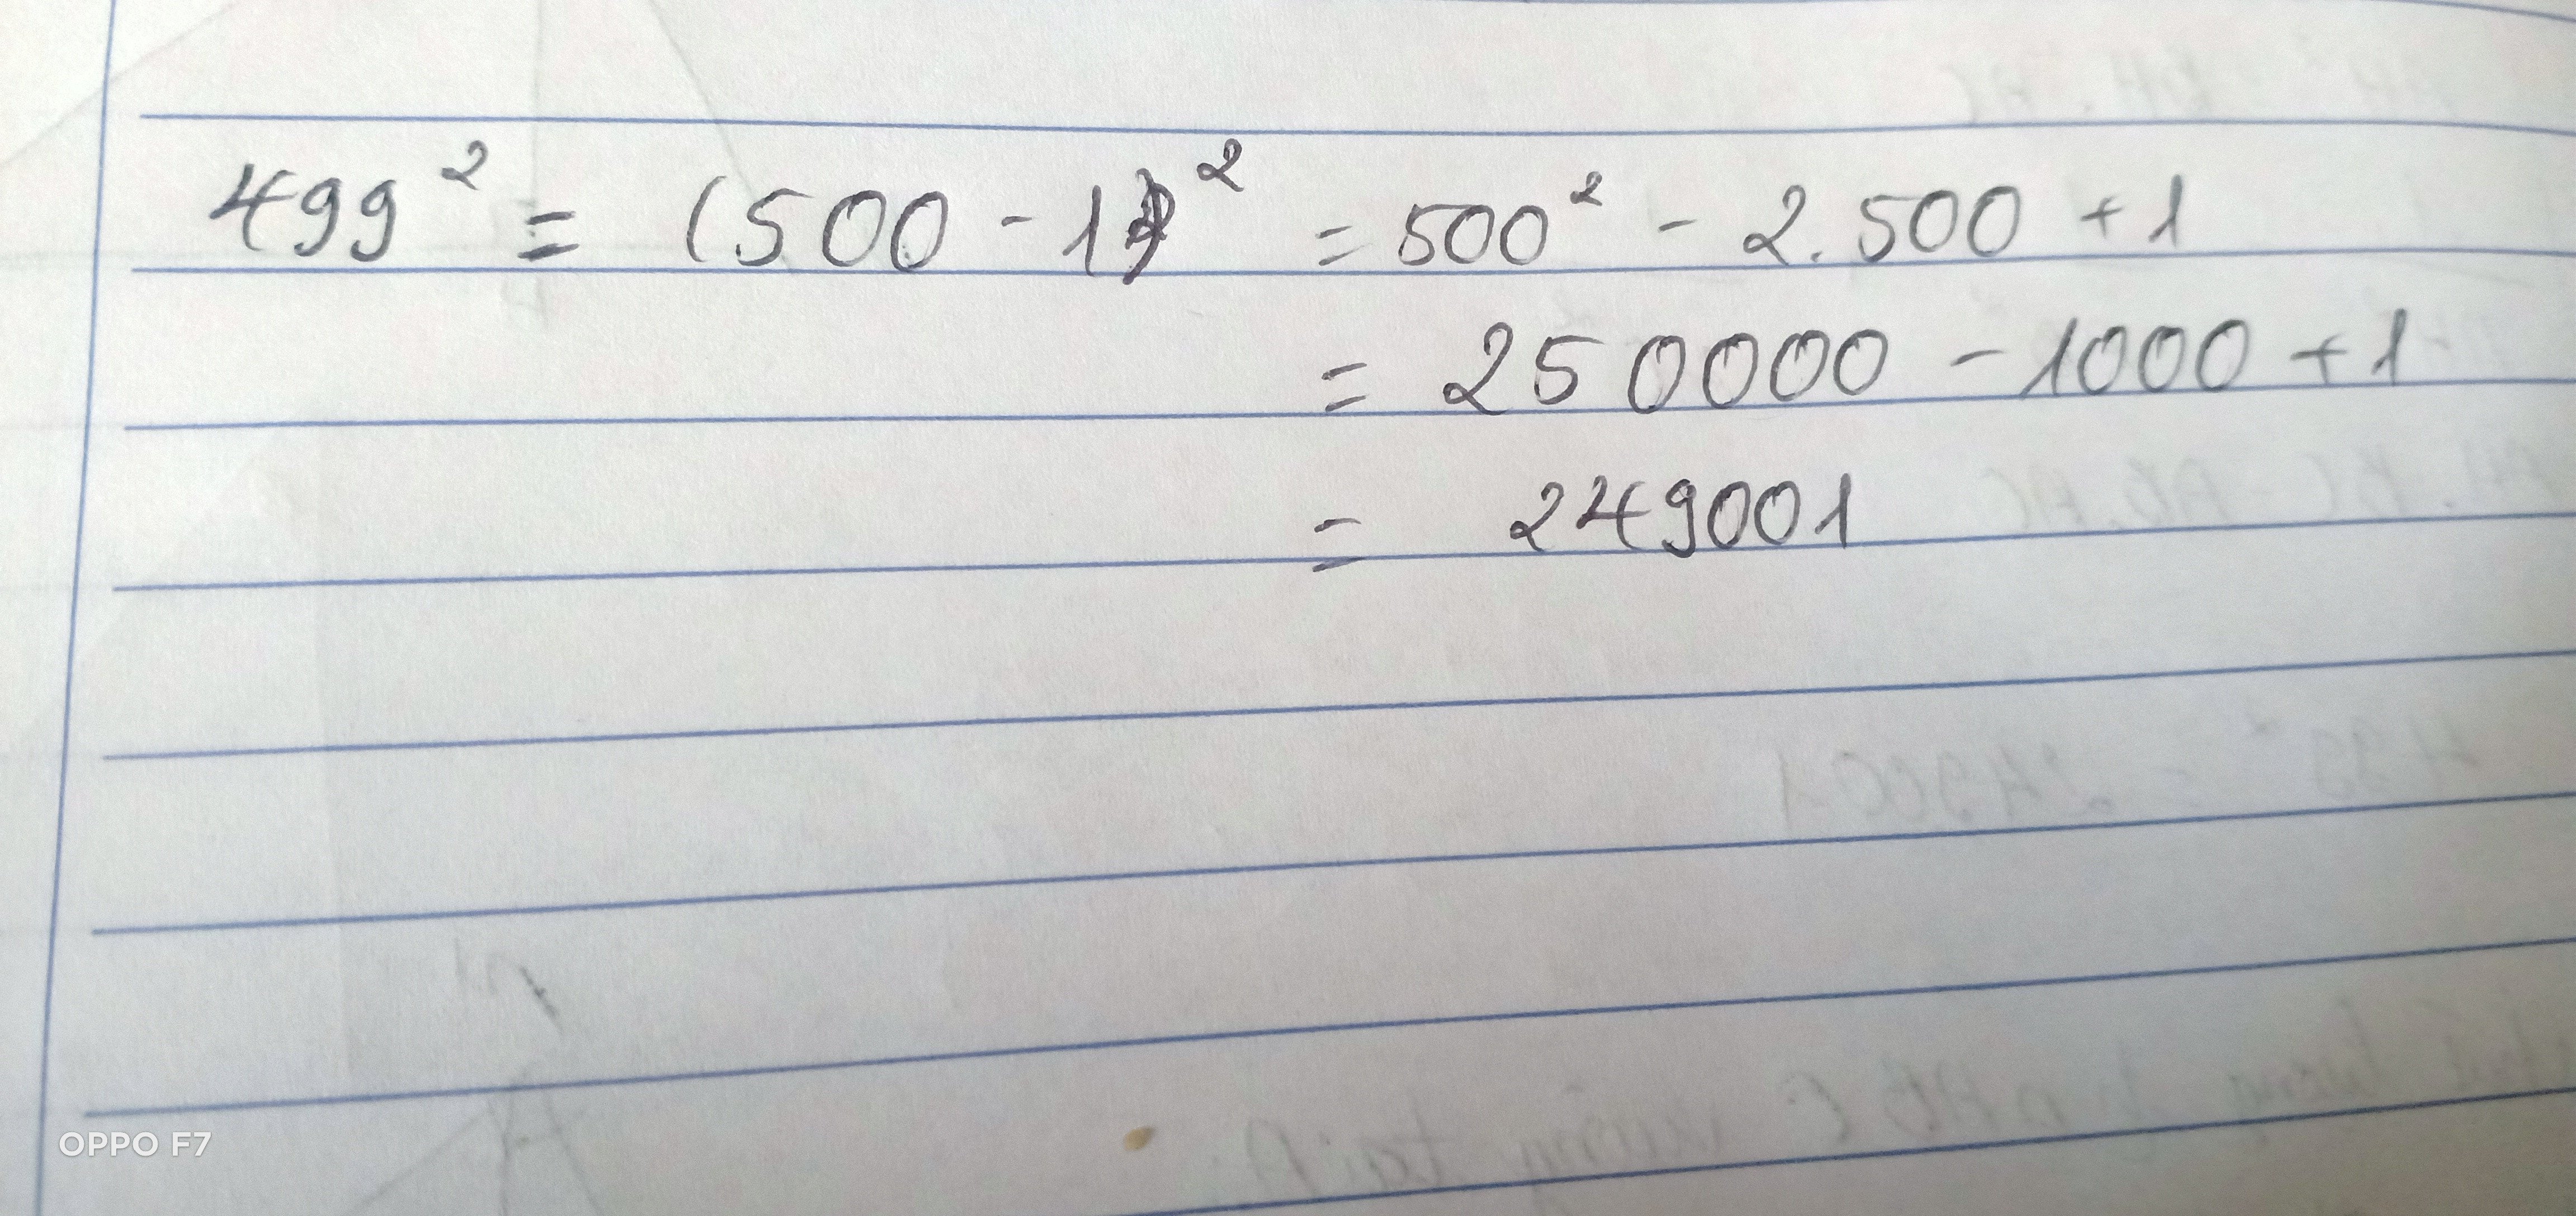 499² = (500 - 1)² = 500² - 2.500 + 1
= 250000 - 1000 + 1
= 249001
499² = 249001
OPPO F7